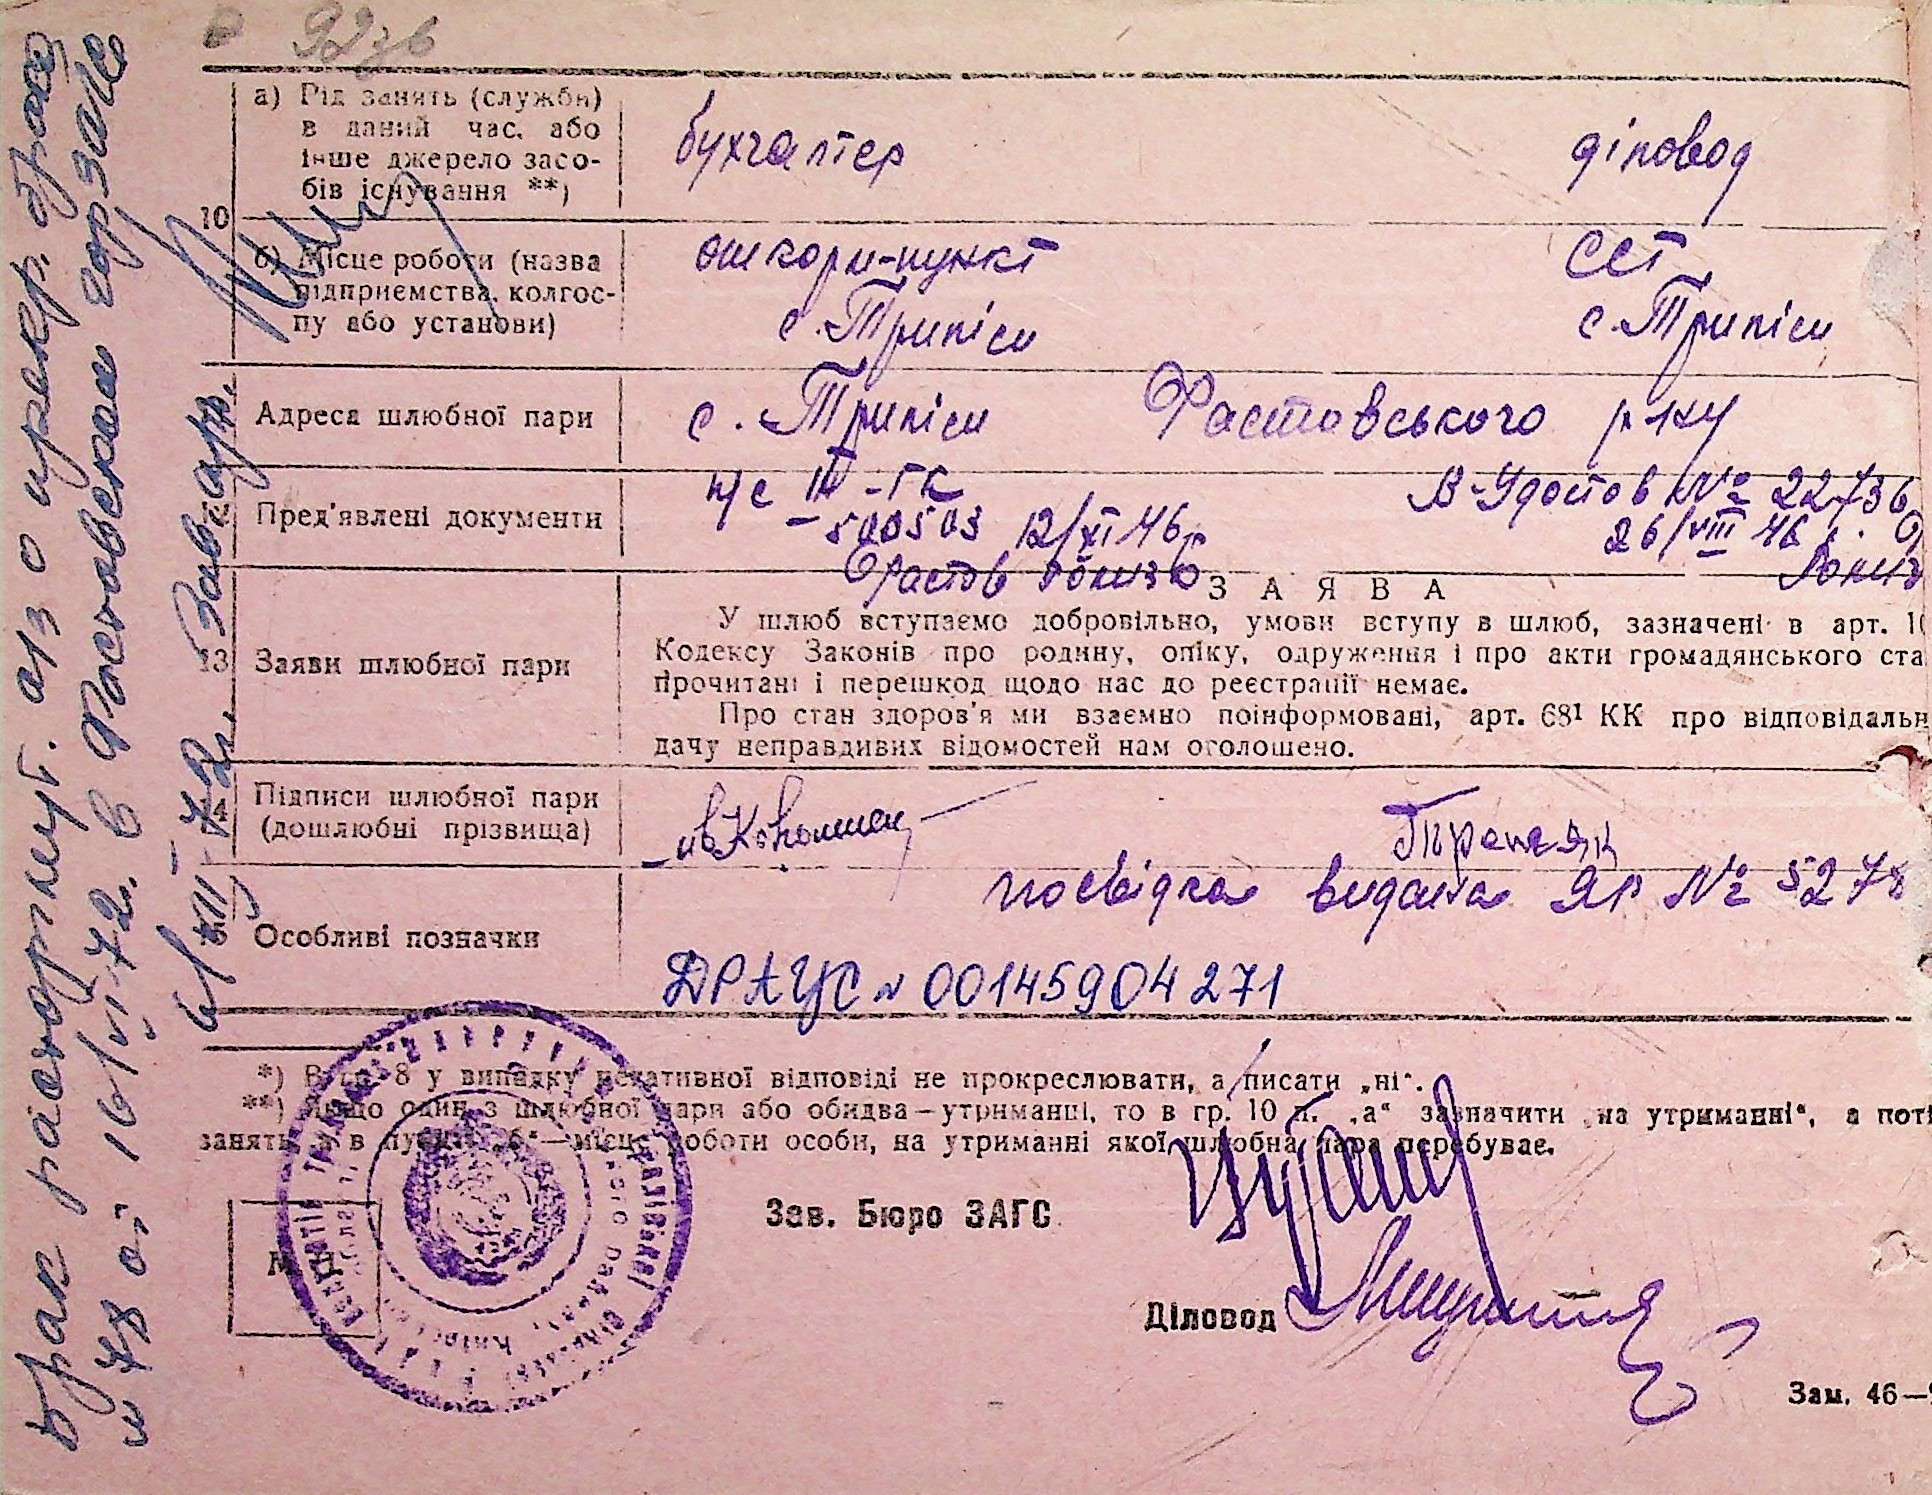 92зв
а) Рід занять (служби)
в даний час, або
інше джерело засо-
бів існування **)
бухгалтер
діловод
10
б) Місце роботи (назва
підприємства, колгос-
пу або установи)
пункт
с. Трилісы
ССТ
с. Трилісы
Адреса шлюбної пари
с. Трилісы Фастовського р-ну
Пред'явлені документи
п/с III-ГК
500503 12/XI 46 р
Фастов
В-Удостов № 22736
26/VIII 46
13
Заяви шлюбної пари
ЗАЯВА
У шлюб вступаємо добровільно, умови вступу в шлюб, зазначені в арт. 10
Кодексу Законів про родину, опіку, одруження і про акти громадянського ста
прочитані і перешкод щодо нас до реєстрації немає.
Про стан здоров'я ми взаємно поінформовані, арт. 68¹ КК про відповідальн
дачу неправдивих відомостей нам оголошено.
Підписи шлюбної пари
(дошлюбні прізвища)
Особливі позначки
посвідка видана ЯР № 5278
ДРАЦС № 00145904271
*) В гр. 8 у випадку негативної відповіді не прокреслювати, а писати „ні“.
**) Якщо один з шлюбної пари або обидва—утриманці, то в гр. 10 п. „а“ зазначити „на утриманні“, а поті
занять, а в пункті „б“—місце роботи особи, на утриманні якої шлюбна пара перебуває.
Зав. Бюро ЗАГС
М. П.
Діловод
Зам. 46—
Брак расторгнут. а/з о прекр. брака
№ 78 от 16/VI 72г. в Фастовском горЗАГСе
6/XII-72г. Зав. арх.